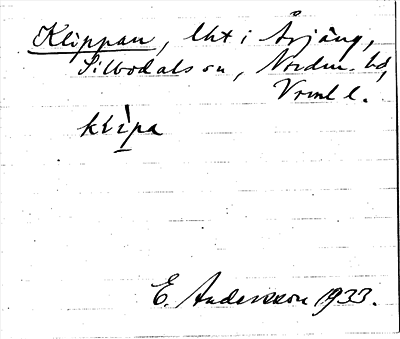 Klippan, lht i Årjäng,
Silbodals sn, Nordm. hd,
Vrml l.
klìpa
E. Andersson 1933.